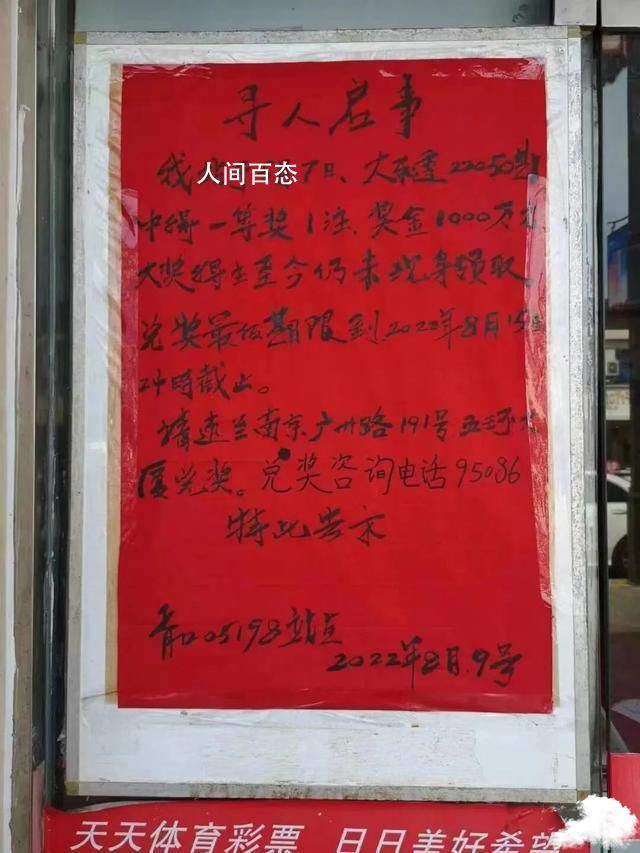 寻人启事
我
人间百态
7日、大乐透22050期
中得一等奖1注、奖金1000万元
大奖得主至今仍未现身领取。
兑奖最后期限到2022年8月15日
24时截止。
请速至南京广州路191号五环大
厦兑奖。兑奖咨询电话95086
特此告示
05198站点
2022年8月.9号
天天体育彩票 日日美好希望